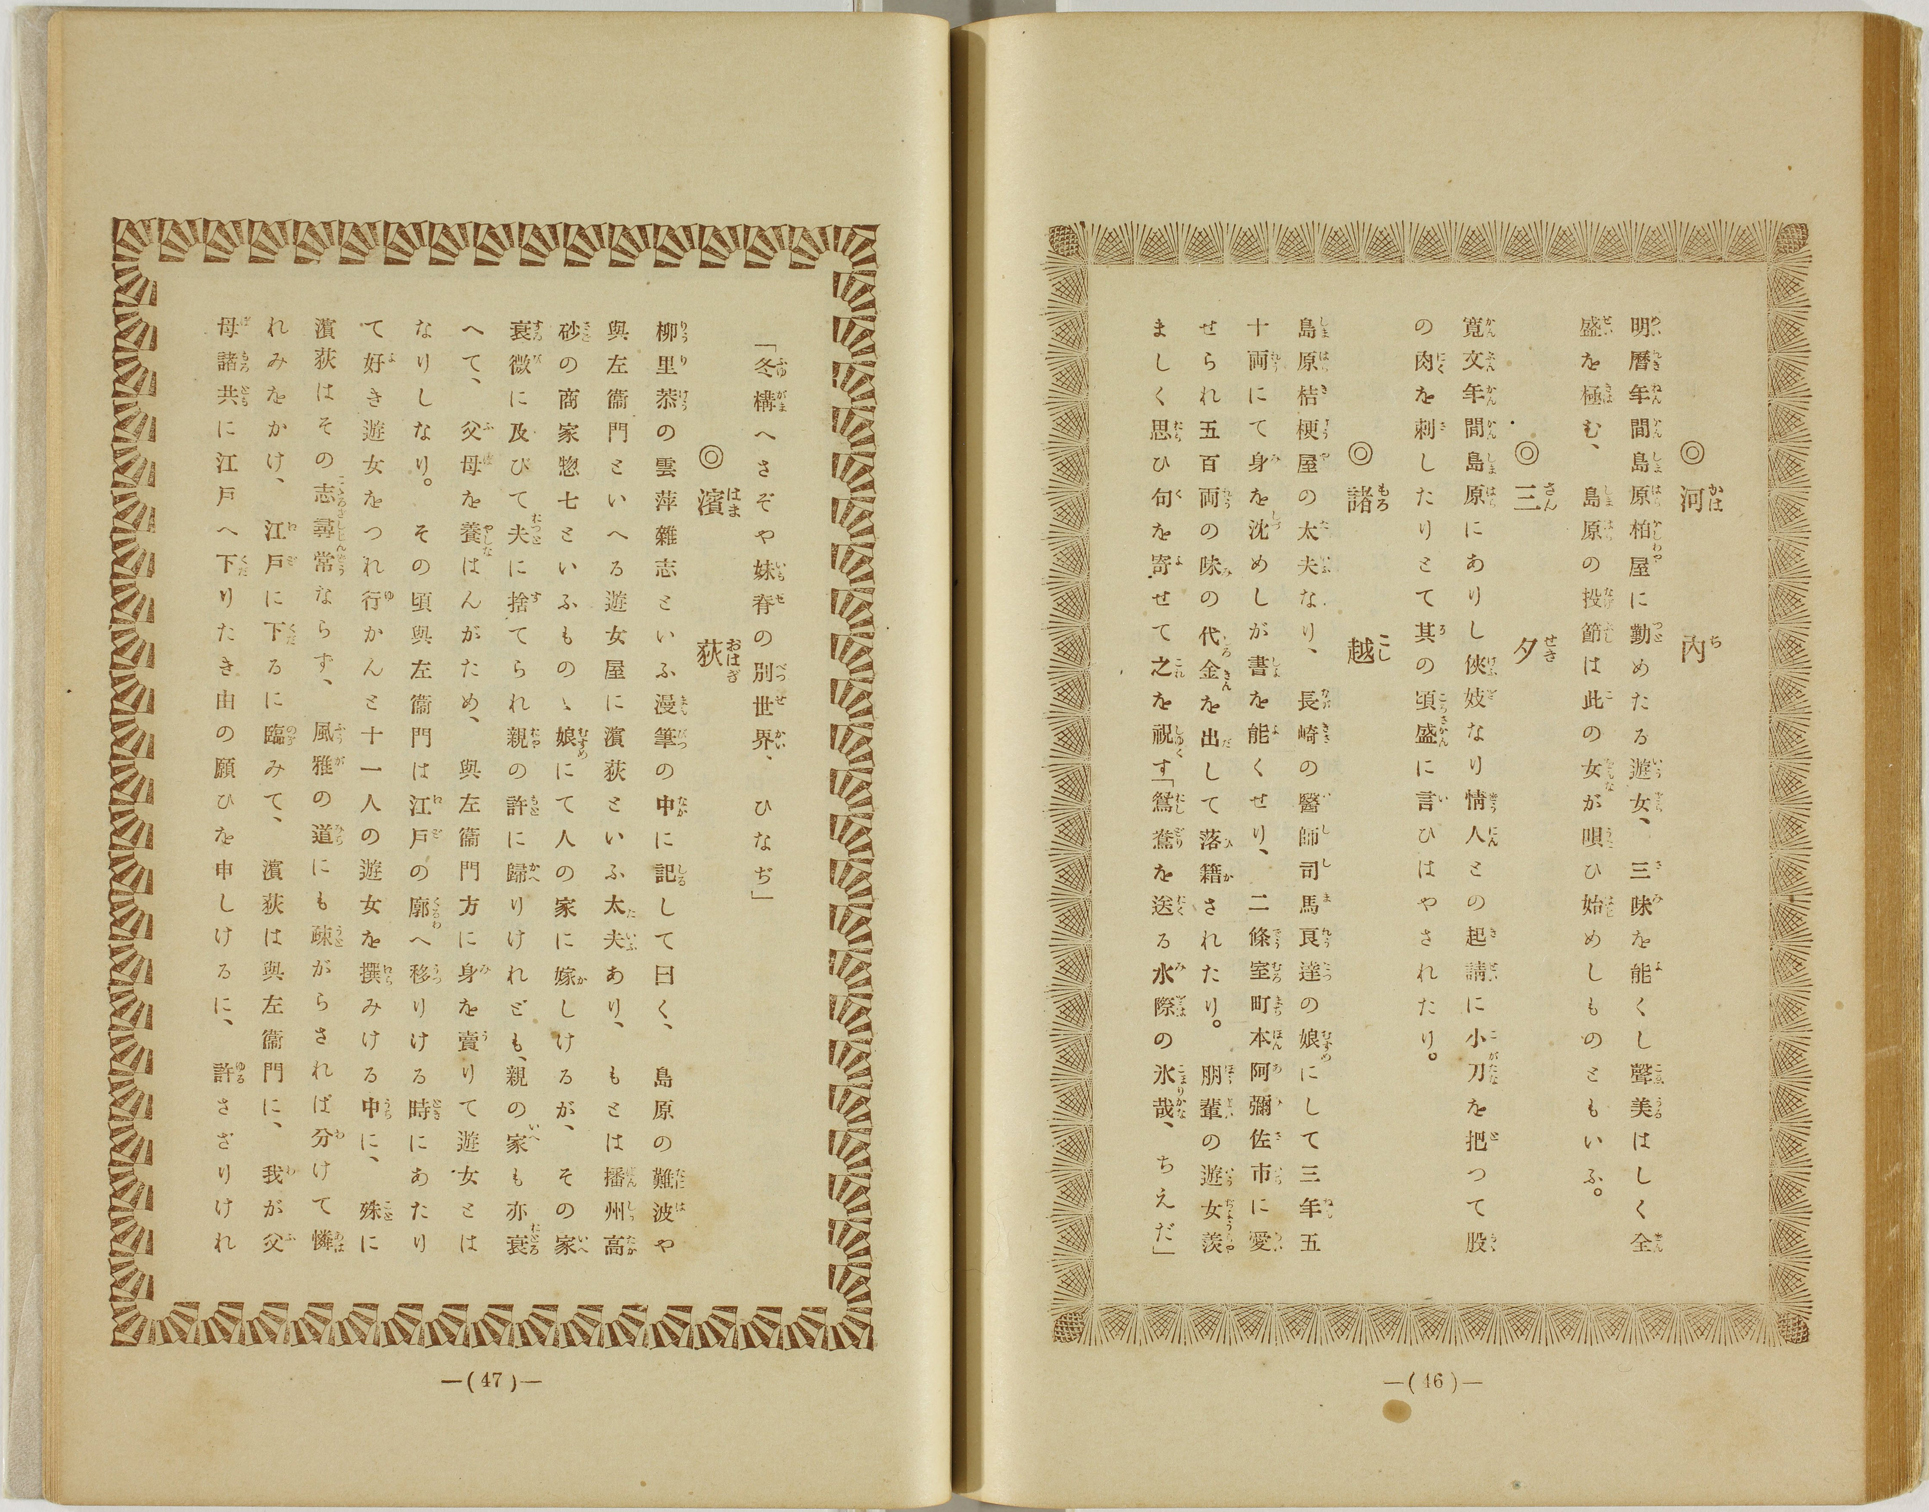 ◎河内
明曆年間島原柏屋に勤めたる遊女、三味を能くし聲美はしく全
盛を極む、島原の投節は此の女が唄ひ始めしものともいふ。
◎三夕
寬文年間島原にありし俠妓なり情人との起請に小刀を把つて股
の肉を刺したりとて其の頃盛に言ひはやされたり。
◎諸越
島原桔梗屋の太夫なり、長崎の醫師司馬良達の娘にして三年五
十両にて身を沈めしが書を能くせり、二條室町本阿彌佐市に愛
せられ五百両の味の代金を出して落籍されたり。朋輩の遊女羨
ましく思ひ句を寄せて之を祝す「鴛鴦を送る水際の氷哉、ちえだ」
—(46)—
「冬構へさぞや妹脊の別世界、ひなぢ」
◎濱荻
柳里恭の雲萍雜志といふ漫筆の中に記して曰く、島原の難波や
與左衞門といへる遊女屋に濱荻といふ太夫あり、もとは播州高
砂の商家惣七といふものゝ娘にて人の家に嫁しけるが、その家
衰微に及びて夫に捨てられ親の許に歸りけれども、親の家も亦衰
へて、父母を養はんがため、與左衞門方に身を賣りて遊女とは
なりしなり。その頃與左衞門は江戶の廓へ移りける時にあたり
て好き遊女をつれ行かんと十一人の遊女を撰みける中に、殊に
濱荻はその志尋常ならず、風雅の道にも疎がらされば分けて憐
れみをかけ、江戶に下るに臨みて、濱荻は與左衞門に、我が父
母諸共に江戶へ下りたき由の願ひを申しけるに、許さざりけれ
—(47)—